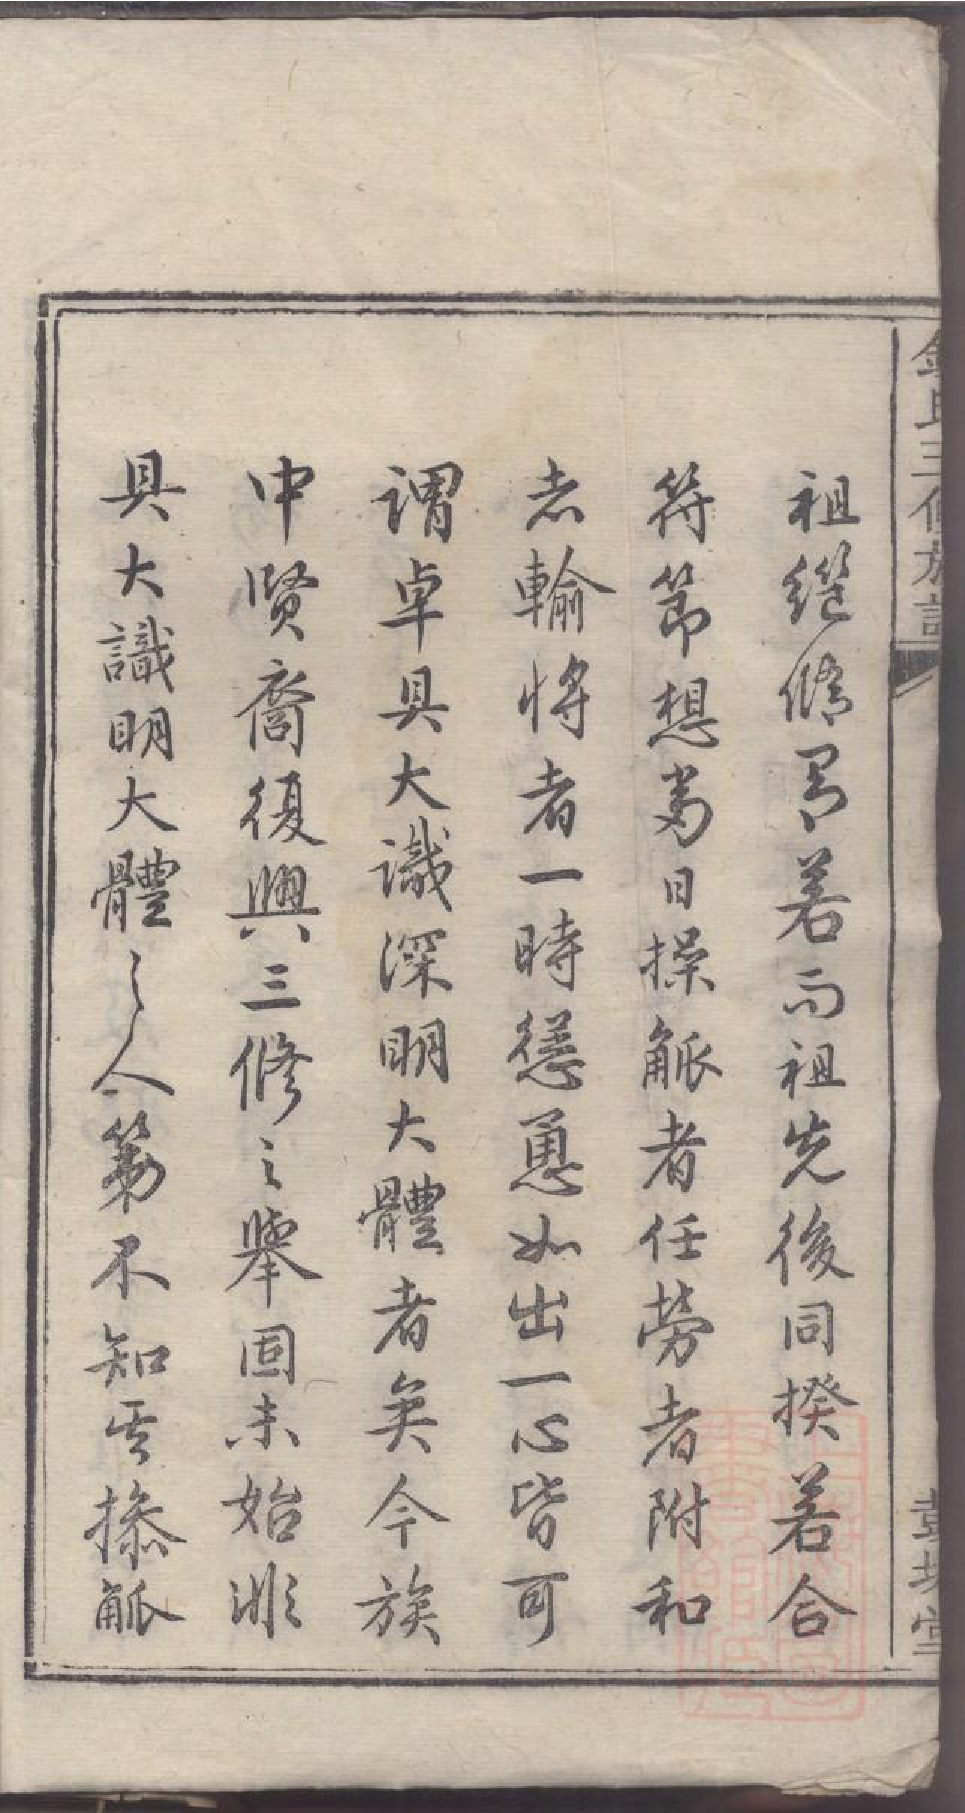 祖繼脩胃若而祖先後同揆若合
符節想當日操觚者任勞者附和
志輸將者一時慫恿如出一心皆可
謂卓具大識深明大體者矣今族
中賢裔復興三修之舉固未始非
具大識明大體之人第不知其操觚
氏三修族譜
堂